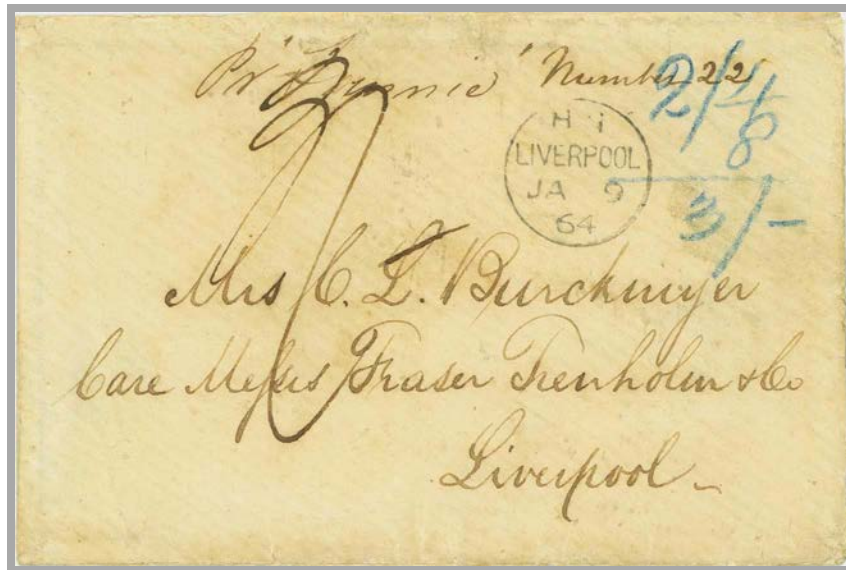 Pr "Fannie" Number 22
H 1
LIVERPOOL
JA 9
64
3/-
Mrs C. L. Burckmyer
Care Messrs Fraser Trenholm & Co
Liverpool